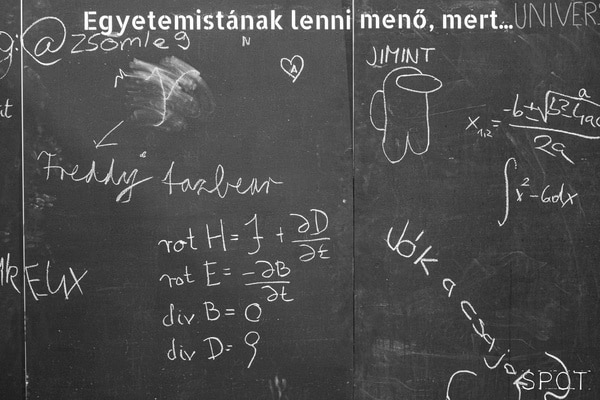 Egyetemistának lenni menő, mert...
UNIVERS
g: @zsomle9
N
A
JIMINT
Freddy fazbear
x1,2 = -b±√b²-4ac
2a
a
∫x²-6dx
rot H = J + ∂D/∂t
rot E = -∂B/∂t
div B = 0
div D = ρ
EUX
Jók a csajok
SPOT